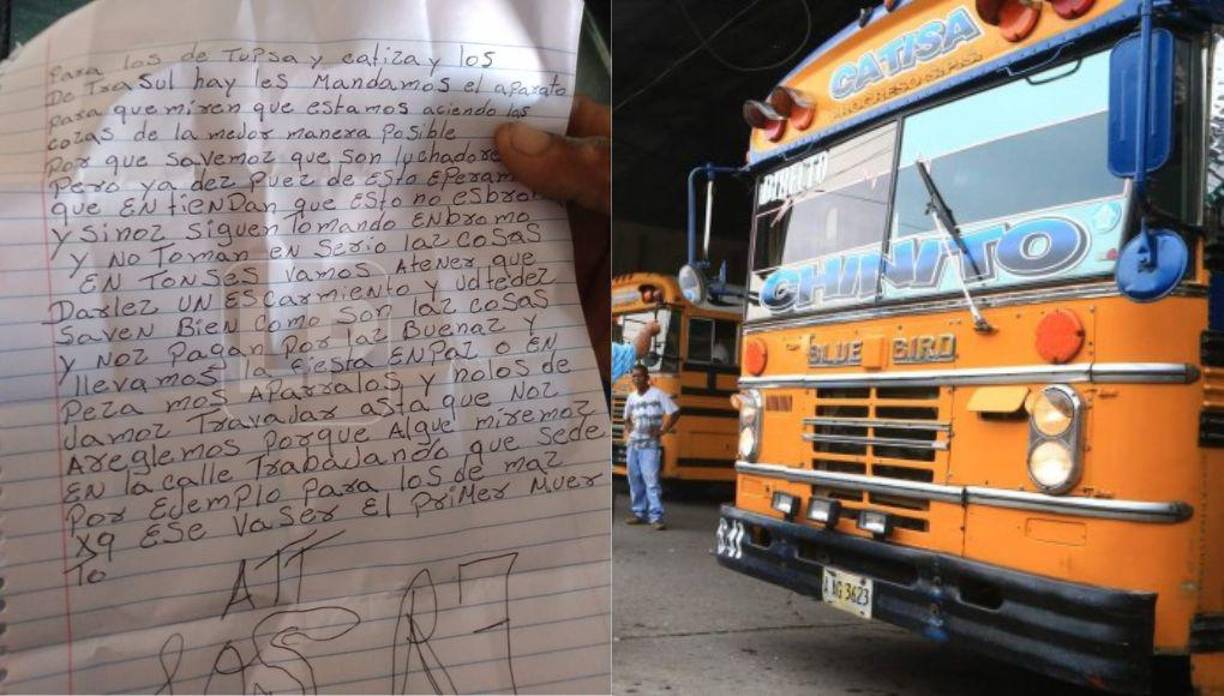 Para los de TUPSa y catiza y los
De TraSul hay les Mandamos el aparato
para que miren que estamos aciendo las
cozas de la medor manera Posible
Por que savemoz que son luchadore
Pero ya dez Puez de ESto EPeram
que ENtieNDan que ESto no esbro
y Sinoz Siguen Tomando ENbromo
y No Toman en Serio laz cosas
EN TONSES vamos Atener que
Darlez UN EScarmiento y Udtedez
Saven Bien como Son laz cosas
y Noz Pagan Por laz Buenaz y
llevamos la fiesta ENPaz o EN
Peza mos APArralos y nolos de
Jamoz Travajar asta que Noz
Areglemos Porque Algue miremoz
EN la calle Trabajando que Sede
Por Ejemplo Para los de maz
Xq ESe Vaser El PriMer Muer
To
ATT
Los R-7
CATISA
PROGRESO-S.P.S.
DIRECTO
CHINITO
BLUE BIRD
AAG 3623